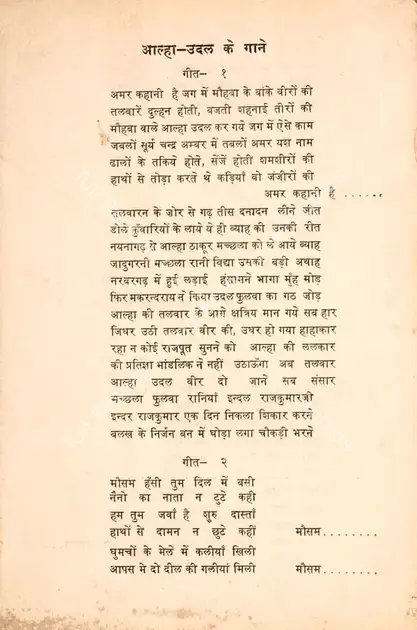 आल्हा-उदल के गाने
गीत- १
अमर कहानी है जग में मौहबा के बांके वीरों की
तलवारें दुल्हन होती, बजती शहनाई तीरों की
मौहबा वाले आल्हा उदल कर गये जग में ऐसे काम
जबलों सूर्य चन्द्र अम्बर में तबलों अमर यश नाम
ढालों के तकिये होते, सेंजें होती शमशीरों की
हाथों से तोड़ा करते थे कड़ियाँ वो जंजीरों की
अमर कहानी है ......
तलवारन के जोर से गढ़ तीस दनादन लीने जीत
डोले कुँवारियों के लाये ये ही ब्याह की उनकी रीत
नयनागढ़ से आल्हा ठाकुर मच्छला को ले आये ब्याह
जादुगरनी मच्छला रानी विद्या उसकी बड़ी अथाह
नरवरगढ़ में हुई लड़ाई हंसामने भागा मुँह मोड़
फिर मकरन्दराय ने किया उदल फुलवा का गठ जोड़
आल्हा की तलवार के आगे क्षत्रिय मान गये सब हार
जिधर उठी तलवार वीर की, उधर हो गया हाहाकार
रहा न कोई राजपूत सुनने को आल्हा की ललकार
की प्रतिज्ञा भांडलिक ने नहीं उठाऊँगा अब तलवार
आल्हा उदल वीर दो जाने सब संसार
मच्छला फुलवा रानियाँ इन्दल राजकुमारजो
इन्दर राजकुमार एक दिन निकला शिकार करने
बलख के निर्जन बन में घोड़ा लगा चौकड़ी भरने
गीत- २
मौसम हँसी तुम दिल में बसी
नैंनो का नाता न टुटे कही
हम तुम जवाँ है शुरु दास्ताँ
हाथों से दामन न छुटे कहीं मौसम........
घुमचों के मेले में कलीयां खिली
आपस मे दो दील की गलीयां मिली मौसम........